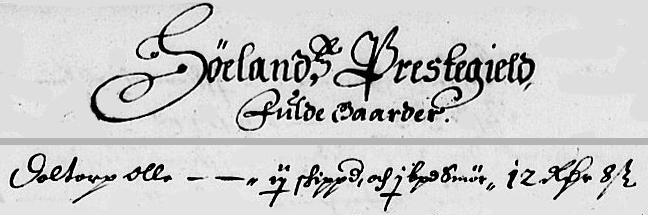 Höelands Prestegield,
Fulde Gaarder.
Doltorp Olle — — „ ij skippd, och j bpd Smör „ 12 Rdr 8 ß